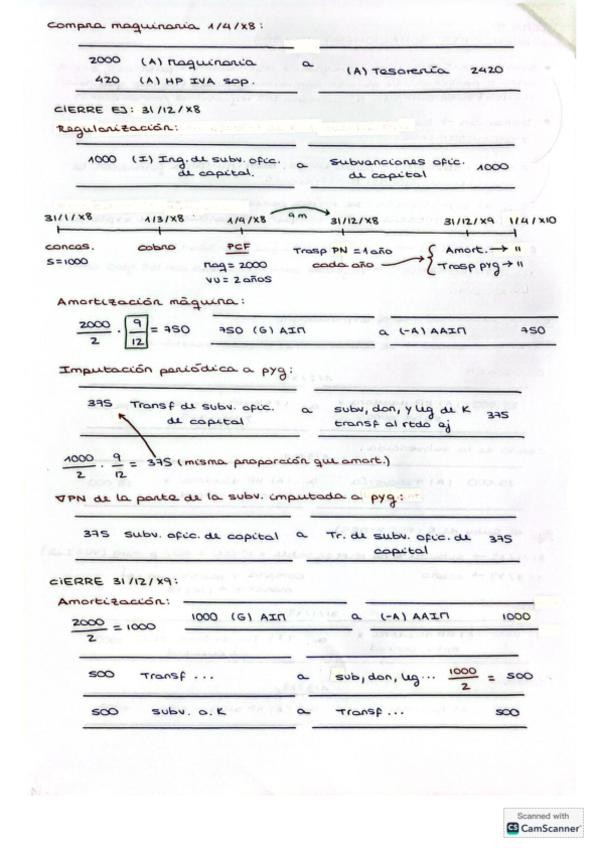 Compra maquinaria 1/4/x8:
2000 (A) Maquinaria a (A) Tesorería 2420
420 (A) HP IVA Sop.
CIERRE EJ: 31/12/x8
Regularización:
1000 (I) Ing. de subv. ofic. de capital. a Subvanciones ofic. de capital 1000
31/1/x8 1/3/x8 1/4/x8 9m 31/12/x8 31/12/x9 1/4/x10
conces. cobro PCF Trasp PN = 1 año Amort. → "
S=1000 Maq = 2000 cada año → Trasp pyg → "
VU = 2 años
Amortización máquina:
2000/2 · 9/12 = 750 750 (G) AIM a (-A) AAIM 750
Imputación periódica a pyg:
375 Transf de subv. ofic. de capital a subv, don, y leg de K transf al rtdo ej 375
1000/2 · 9/12 = 375 (misma proporción que amort.)
∇PN de la parte de la subv. imputada a pyg:
375 Subv. ofic. de capital a Tr. de subv. ofic. de capital 375
CIERRE 31/12/x9:
Amortización:
2000/2 = 1000 1000 (G) AIM a (-A) AAIM 1000
500 Transf ... a sub, don, leg... 1000/2 = 500
500 Subv. o. K a Transf ... 500
Scanned with
CS CamScanner